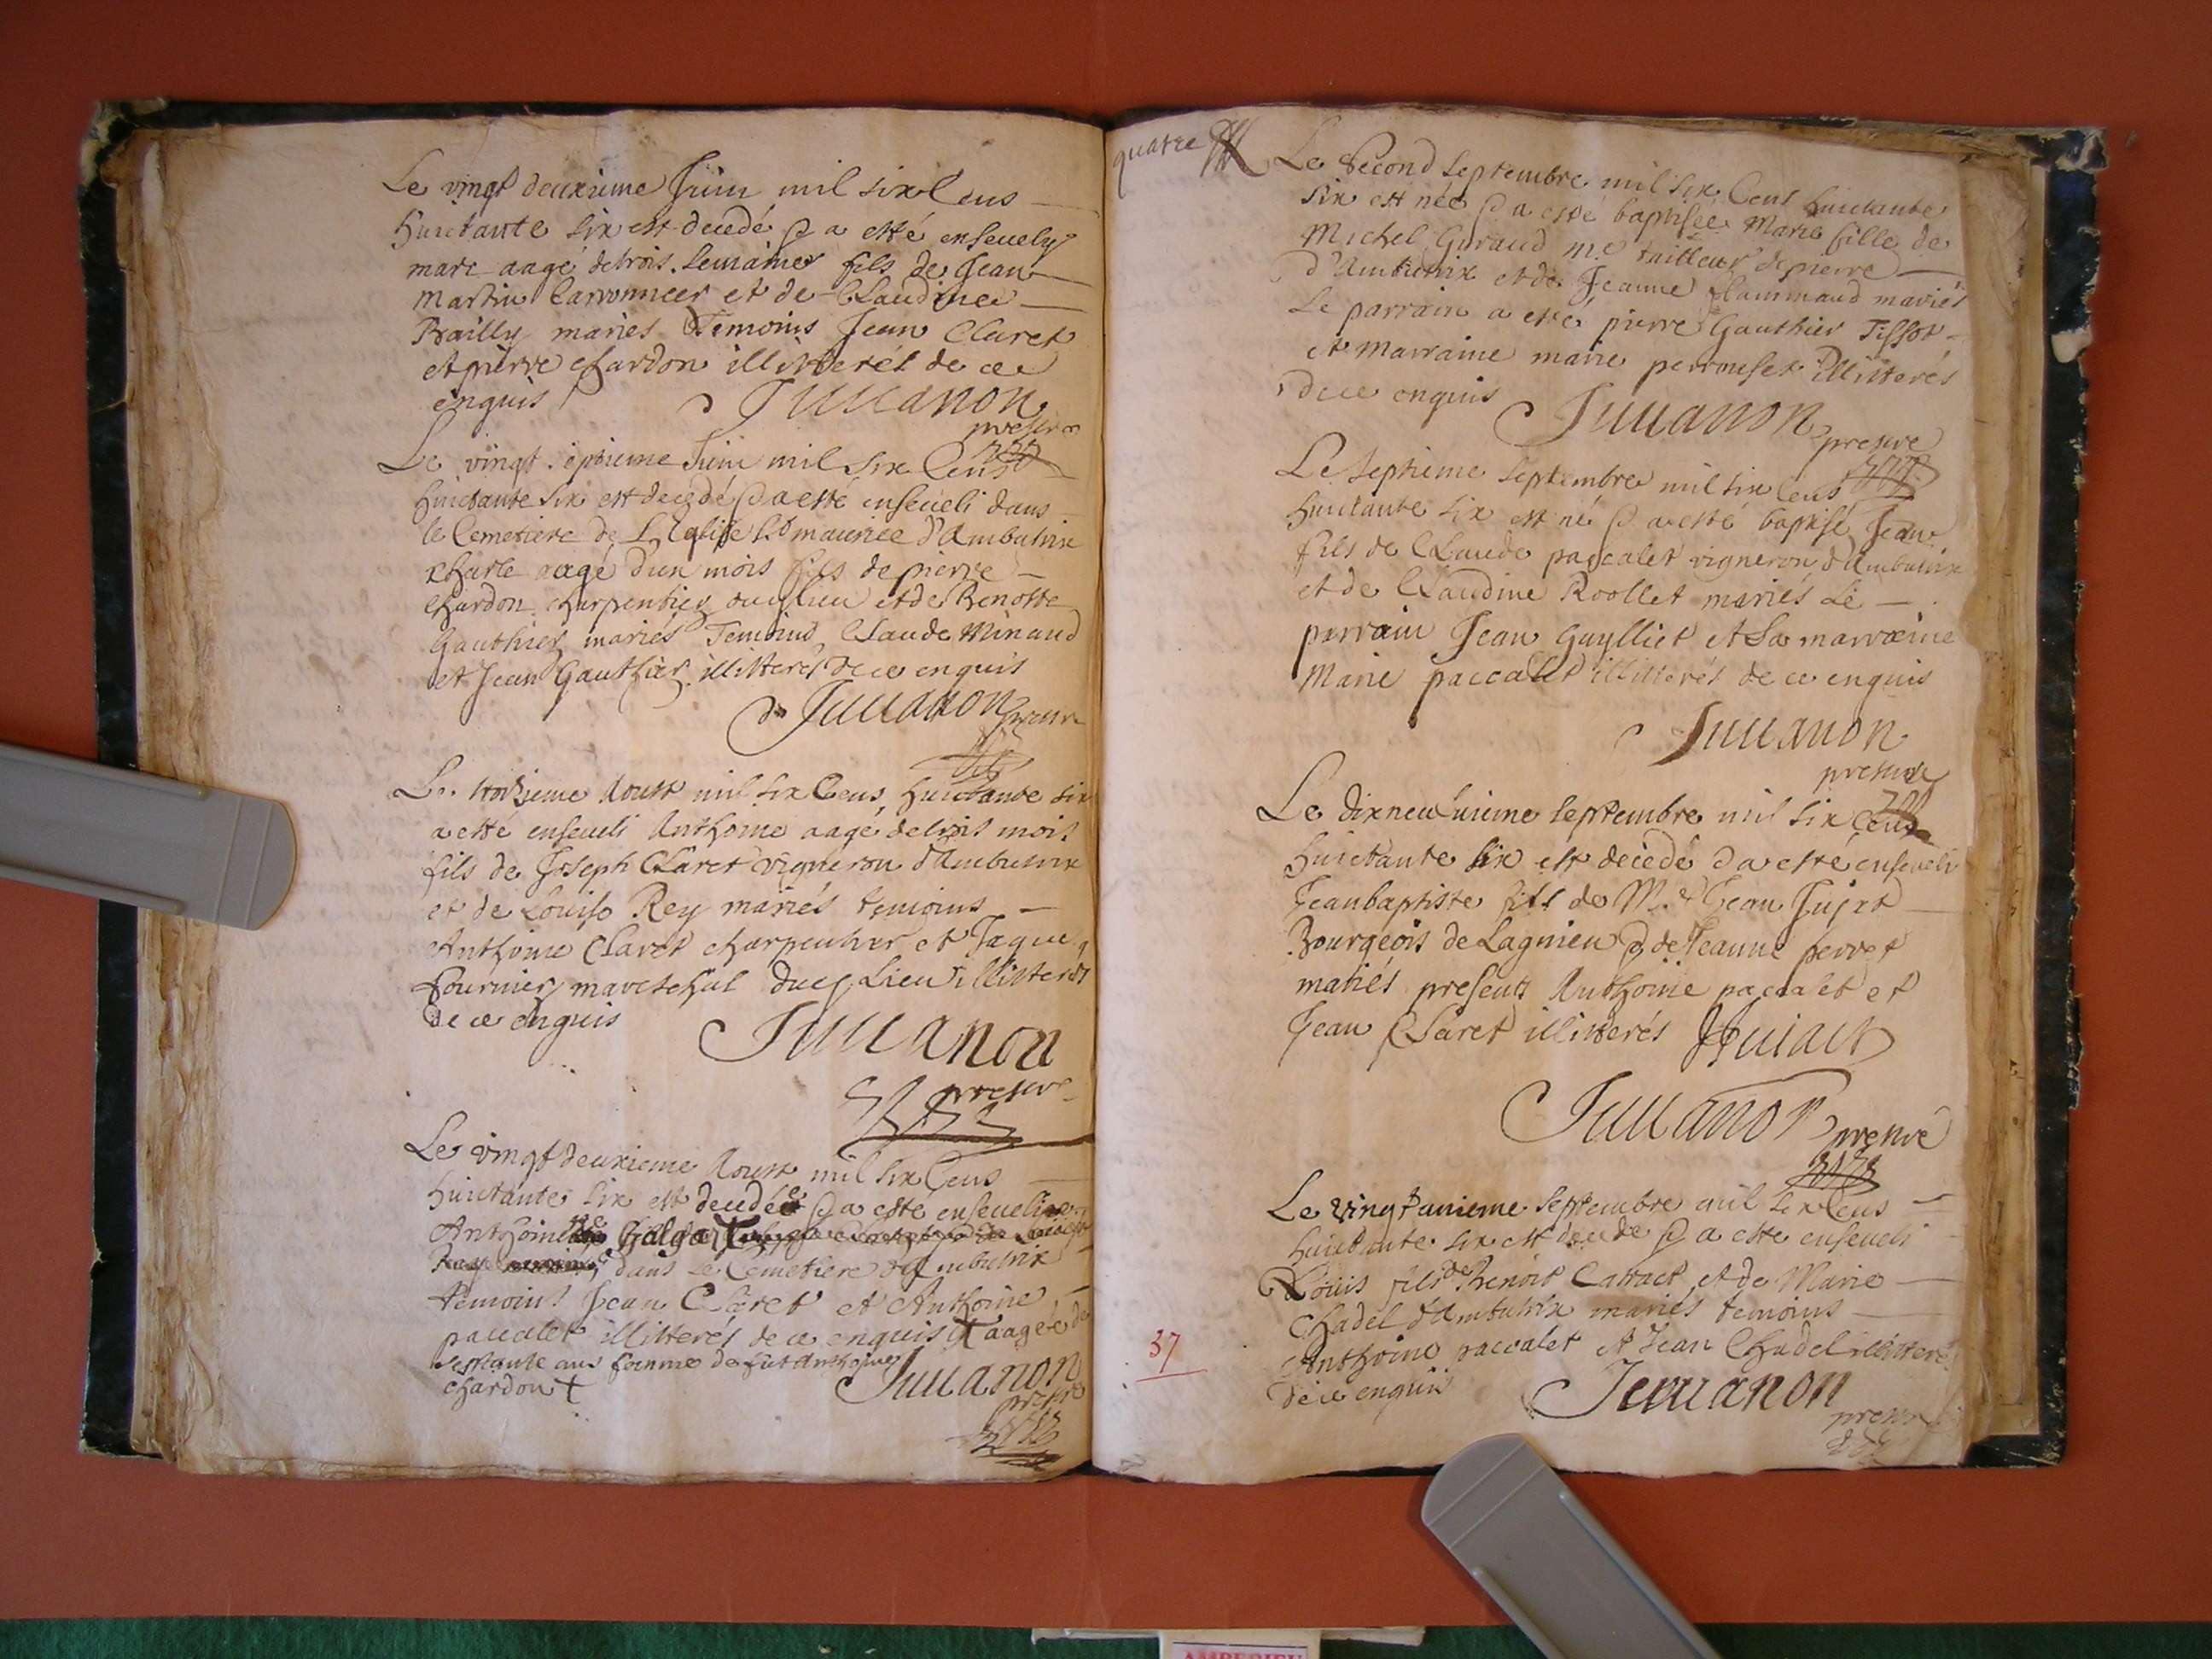 Le vingt deuxieme Juin mil six Cens
huictante six est decedé & a esté ensevely
marc aagé de trois semaines fils de Jean
Martin Carronnier et de Claudine
Brailly mariés Temoins Jean Claret
et pierre chardon illitterés de ce
enquis Juuanon
prestre
Le vingt septieme Juin mil six Cens
huictante six est decedé & a esté enseueli dans
le Cemetiere de L'Eglise St maurice d'Ambutrix
charle aagé d'un mois fils de pierre
chardon charpentier dud lieu et de Benoste
Gauthier mariés Temoins Claude Minaud
et Jean Gauthier illitterés de ce enquis
Juuanon prestre
Le troisieme Aoust mil six Cens huictante six
a esté enseueli Anthoine aagé de trois mois
fils de Joseph Claret vigneron d'Ambutrix
et de Louise Rey mariés temoins
Anthoine Claret charpentier et Jaque
fournier mareschal dud Lieu illitterés
de ce enquis Juuanon
prestre
Le vingt deuxieme Aoust mil six Cens
huictante six est decedée & a esté enseuelie
Anthoine Galga
Rey dans le Cemetiere d'Ambutrix
temoins Jean Claret et Anthoine
paccalet illitterés de ce enquis aagée de
septante ans femme de fut Anthoine
chardon Juuanon
prestre
quatre Le second septembre mil six Cens huictante
six est née & a esté baptisée Marie fille de
Michel Guraud me tailleur de pierre
d'Ambutrix et de Jeanne flammand mariés
Le parrain a esté pierre Gauthier Tissot
et marraine marie perrouset illitterés
de ce enquis Juuanon
prestre
Le septieme septembre mil six Cens
huictante six est né & a esté baptisé Jean
fils de Claude paccalet vigneron d'Ambutrix
et de Claudine Roollet mariés Le
parrain Jean Guylliet et La marraine
Marie paccalet illitterés de ce enquis
Juuanon
prestre
Le dixneufuieme septembre mil six Cens
huictante six est decedé & a esté enseueli
Jeanbaptiste fils de M.e Jean Jujat
Bourgeois de Lagnieu & de Jeanne perret
mariés presents Anthoine paccalet et
Jean Claret illitterés JJuiact
Juuanon prestre
Le vingt unieme septembre mil six Cens
huictante six est decedé & a esté enseueli
Louis fils de Benoit Carract et de Marie
Chadel d'Ambutrix mariés temoins
Anthoine paccalet et Jean Chadel illitterés
de ce enquis Juuanon
prestre
37
AMBERIEU